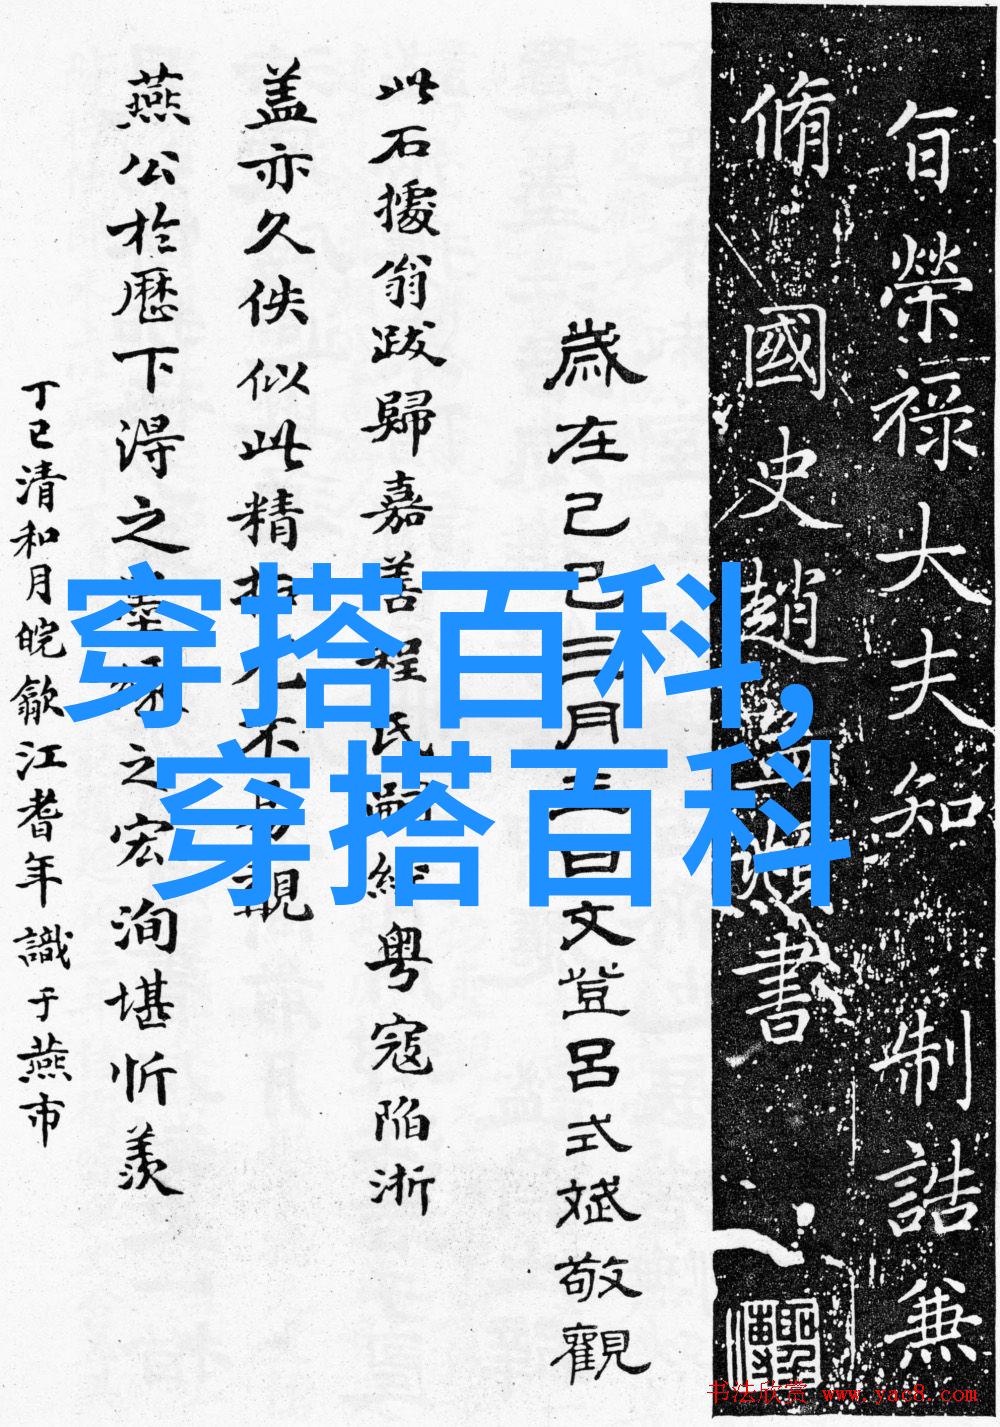 旨榮祿大夫知制誥兼
脩國史趙孟頫書
歲在己巳三月三日文登呂式斌敬觀
此石據翁跋歸嘉善程氏嗣經粵寇陷浙
盖亦久佚似此精拓尤不易覯
燕公於歷下得之墨緣之宏洵堪忻羨
丁巳清和月皖歙江耆年識于燕市
穿搭百科,
穿搭百科
书法欣赏 www.yac8.com